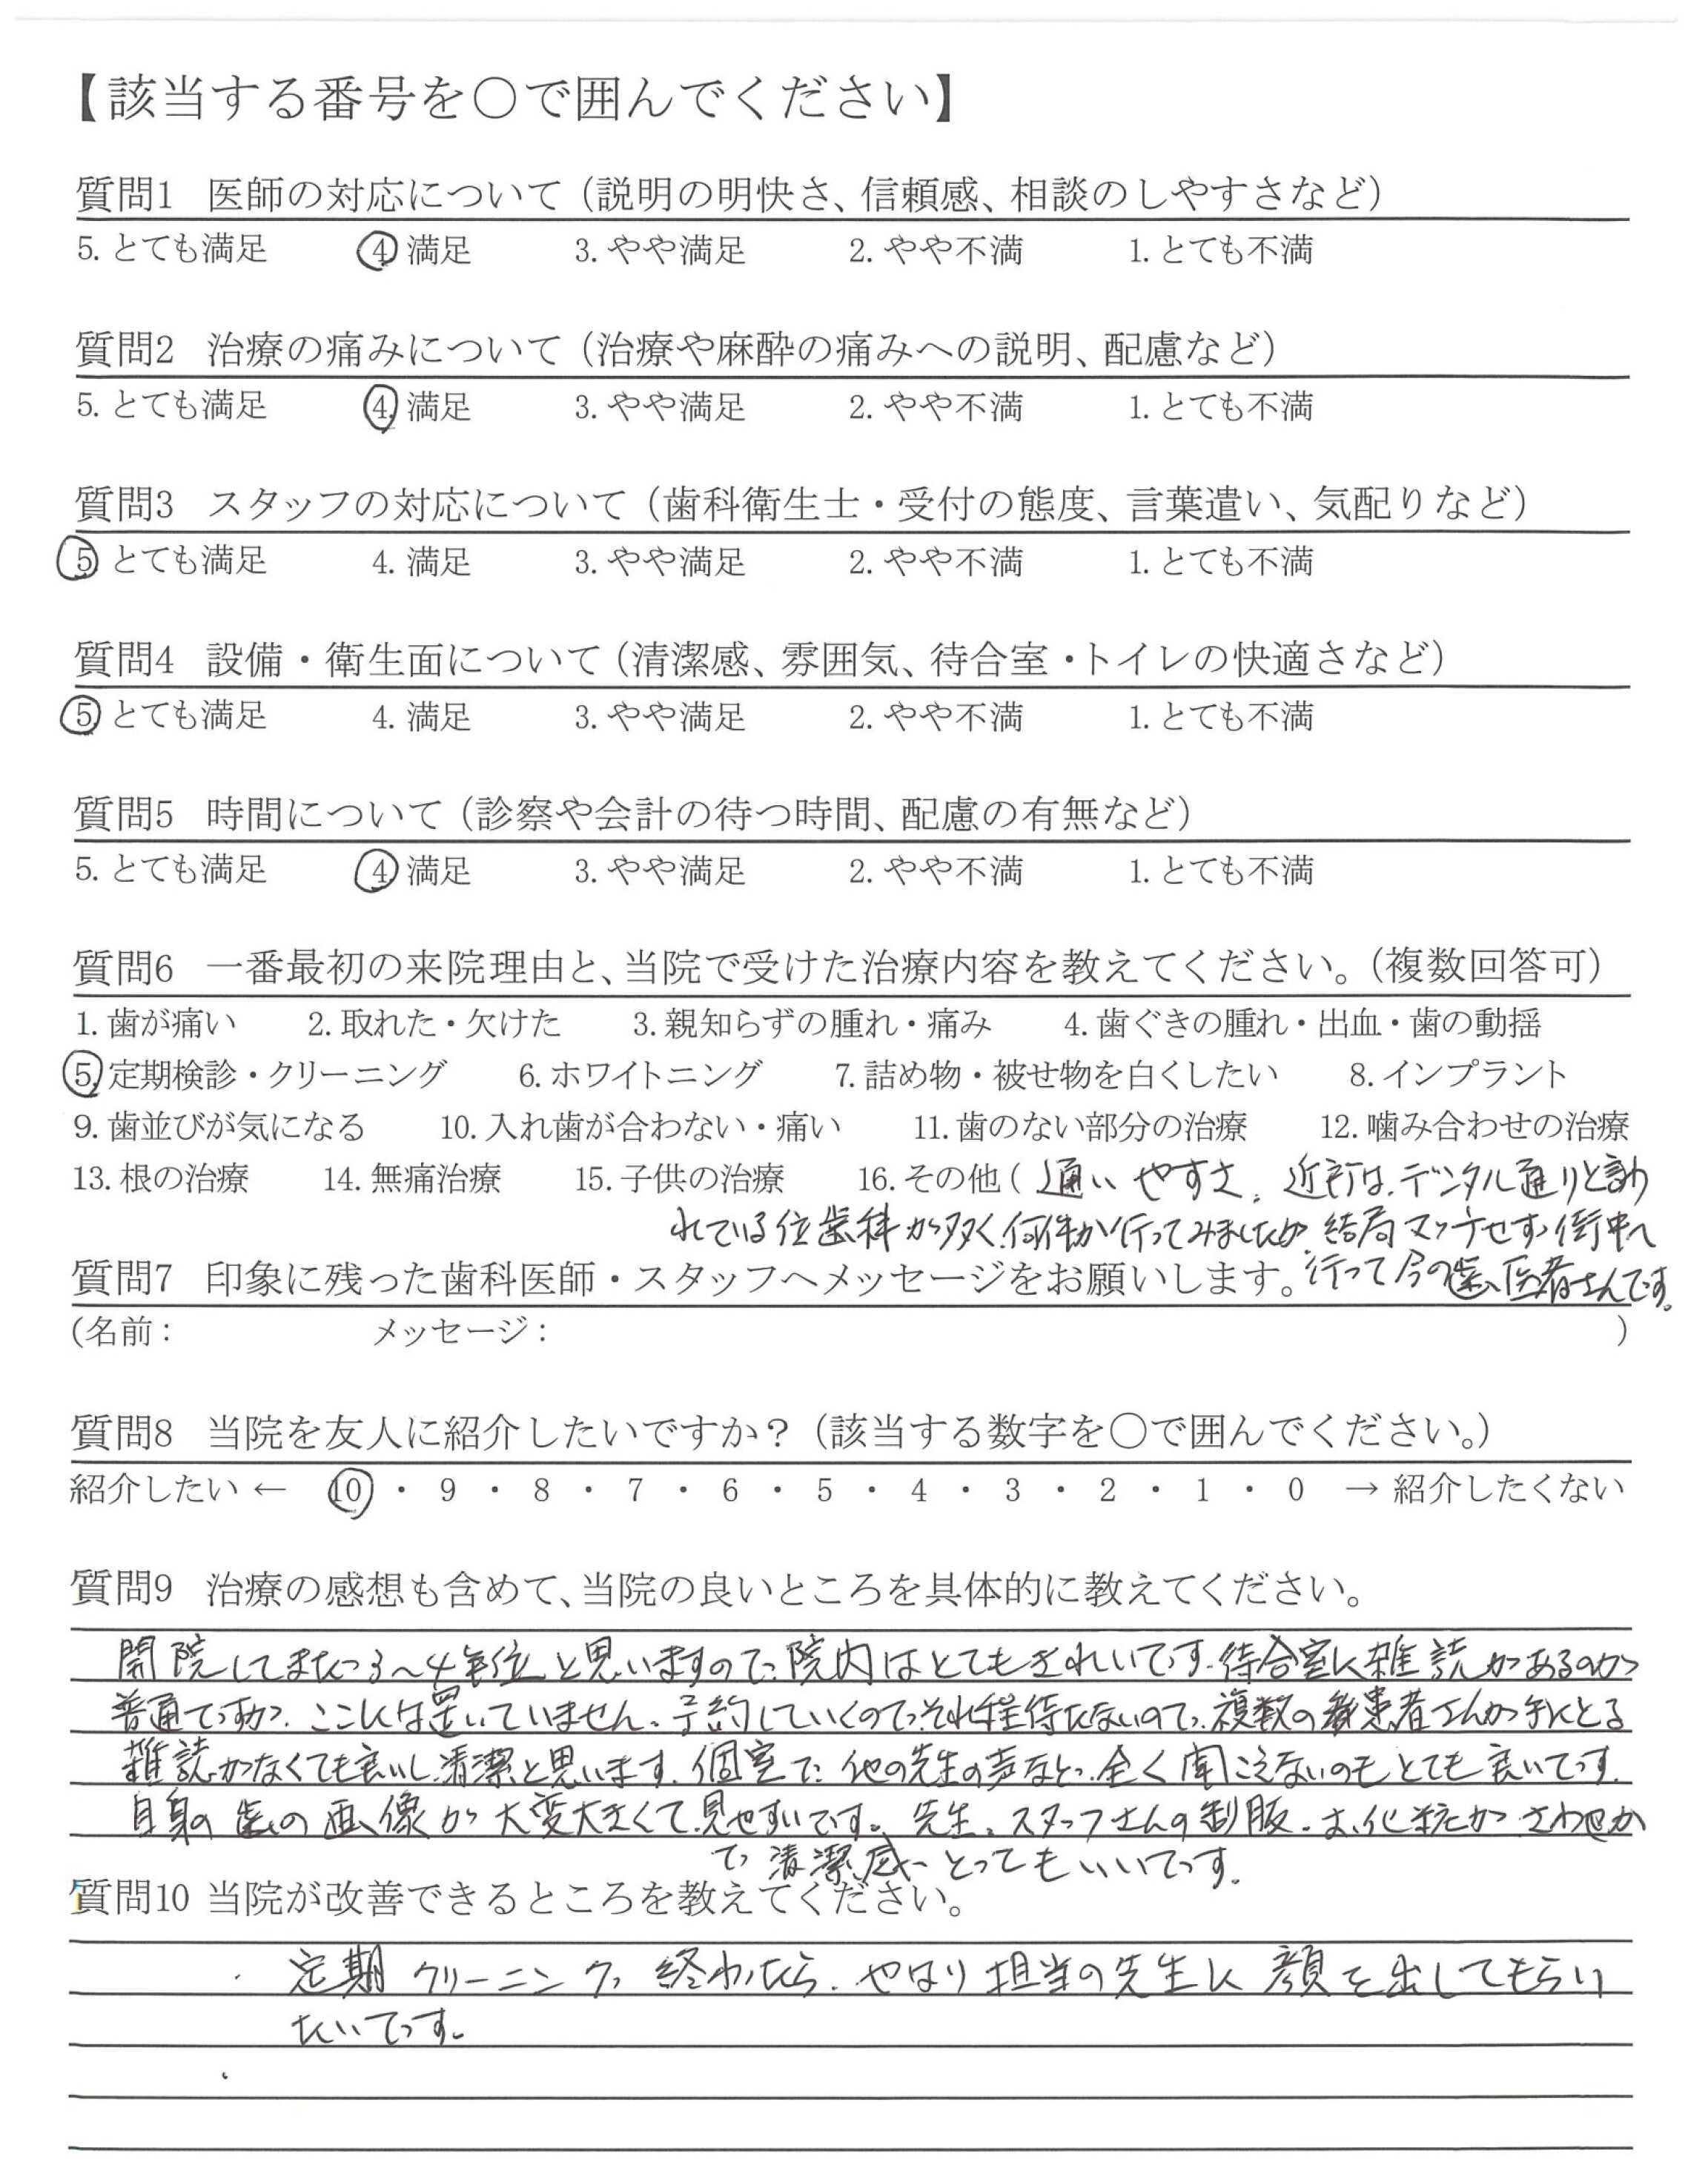 【該当する番号を〇で囲んでください】
質問1 医師の対応について（説明の明快さ、信頼感、相談のしやすさなど）
5. とても満足 4. 満足 3. やや満足 2. やや不満 1. とても不満
質問2 治療の痛みについて（治療や麻酔の痛みへの説明、配慮など）
5. とても満足 4. 満足 3. やや満足 2. やや不満 1. とても不満
質問3 スタッフの対応について（歯科衛生士・受付の態度、言葉遣い、気配りなど）
5. とても満足 4. 満足 3. やや満足 2. やや不満 1. とても不満
質問4 設備・衛生面について（清潔感、雰囲気、待合室・トイレの快適さなど）
5. とても満足 4. 満足 3. やや満足 2. やや不満 1. とても不満
質問5 時間について（診察や会計の待つ時間、配慮の有無など）
5. とても満足 4. 満足 3. やや満足 2. やや不満 1. とても不満
質問6 一番最初の来院理由と、当院で受けた治療内容を教えてください。（複数回答可）
1. 歯が痛い 2. 取れた・欠けた 3. 親知らずの腫れ・痛み 4. 歯ぐきの腫れ・出血・歯の動揺
5. 定期検診・クリーニング 6. ホワイトニング 7. 詰め物・被せ物を白くしたい 8. インプラント
9. 歯並びが気になる 10. 入れ歯が合わない・痛い 11. 歯のない部分の治療 12. 噛み合わせの治療
13. 根の治療 14. 無痛治療 15. 子供の治療 16. その他（ 通いやすさ、近所は、デンタル通りと言わ
れている位歯科が多く、何件か行ってみましたが、結局マッチせず、街中へ
行って今の歯医者さんです。
質問7 印象に残った歯科医師・スタッフへメッセージをお願いします。
（名前： メッセージ： ）
質問8 当院を友人に紹介したいですか？（該当する数字を〇で囲んでください。）
紹介したい ← 10 ・ 9 ・ 8 ・ 7 ・ 6 ・ 5 ・ 4 ・ 3 ・ 2 ・ 1 ・ 0 → 紹介したくない
質問9 治療の感想も含めて、当院の良いところを具体的に教えてください。
開院してまだ3〜4年位と思いますので、院内はとてもきれいです。待合室に雑誌があるのが
普通ですが、ここには置いていません。予約していくのでそれ程待たないので、複数の患者さんが手にとる
雑誌がなくても良いし、清潔と思います。個室で、他の先生の声など、全く聞こえないのもとても良いです。
自身の歯の画像が大変大きくて見やすいです。先生、スタッフさんの制服、お化粧がさわやか
で清潔感、とってもいいです。
質問10 当院が改善できるところを教えてください。
定期クリーニング終わったら、やはり担当の先生に顔を出してもらい
たいです。